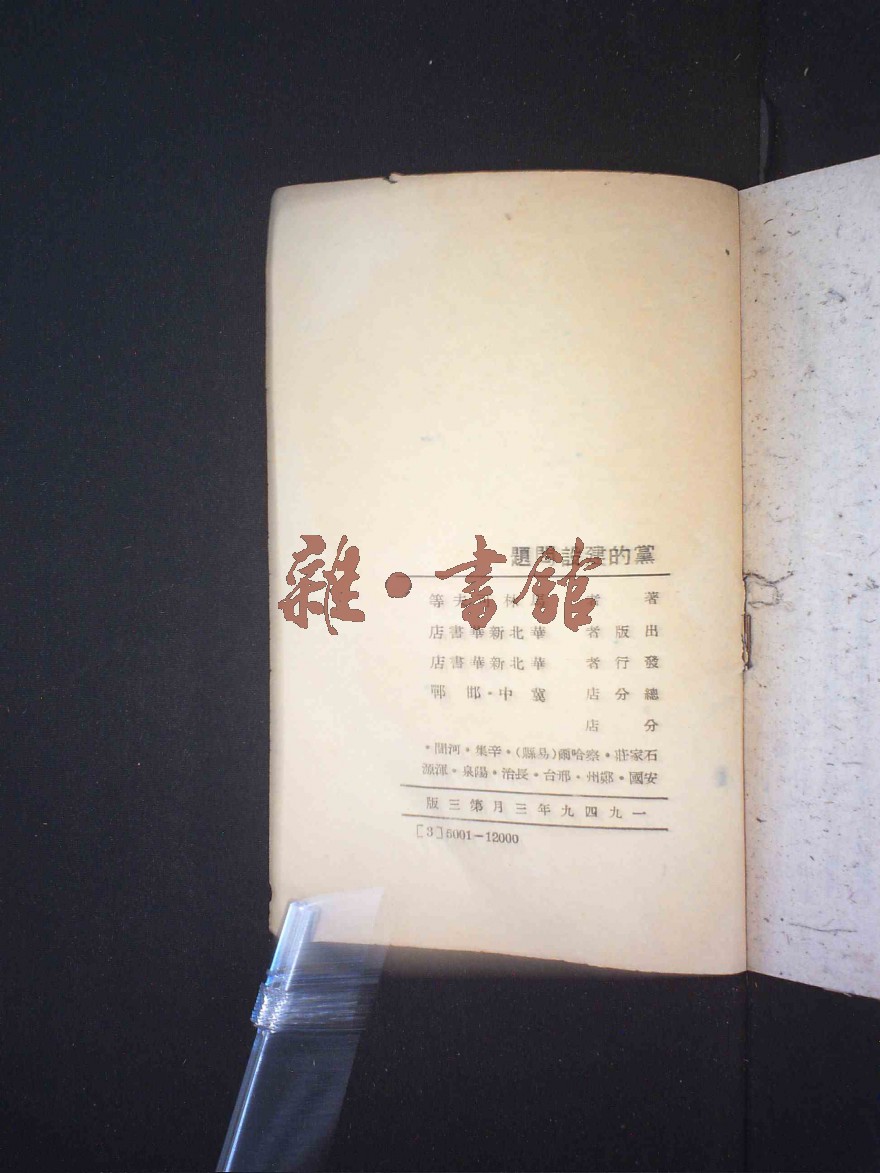 黨的建設問題
著者 林 夫等
出版者 華北新華書店
發行者 華北新華書店
總分店 冀中·邯鄲
分店
石家莊·察哈爾(易縣)·辛集·河間·
安國·鄭州·邢台·長治·陽泉·渾源
一九四九年三月第三版
[3]5001-12000
雜·書館